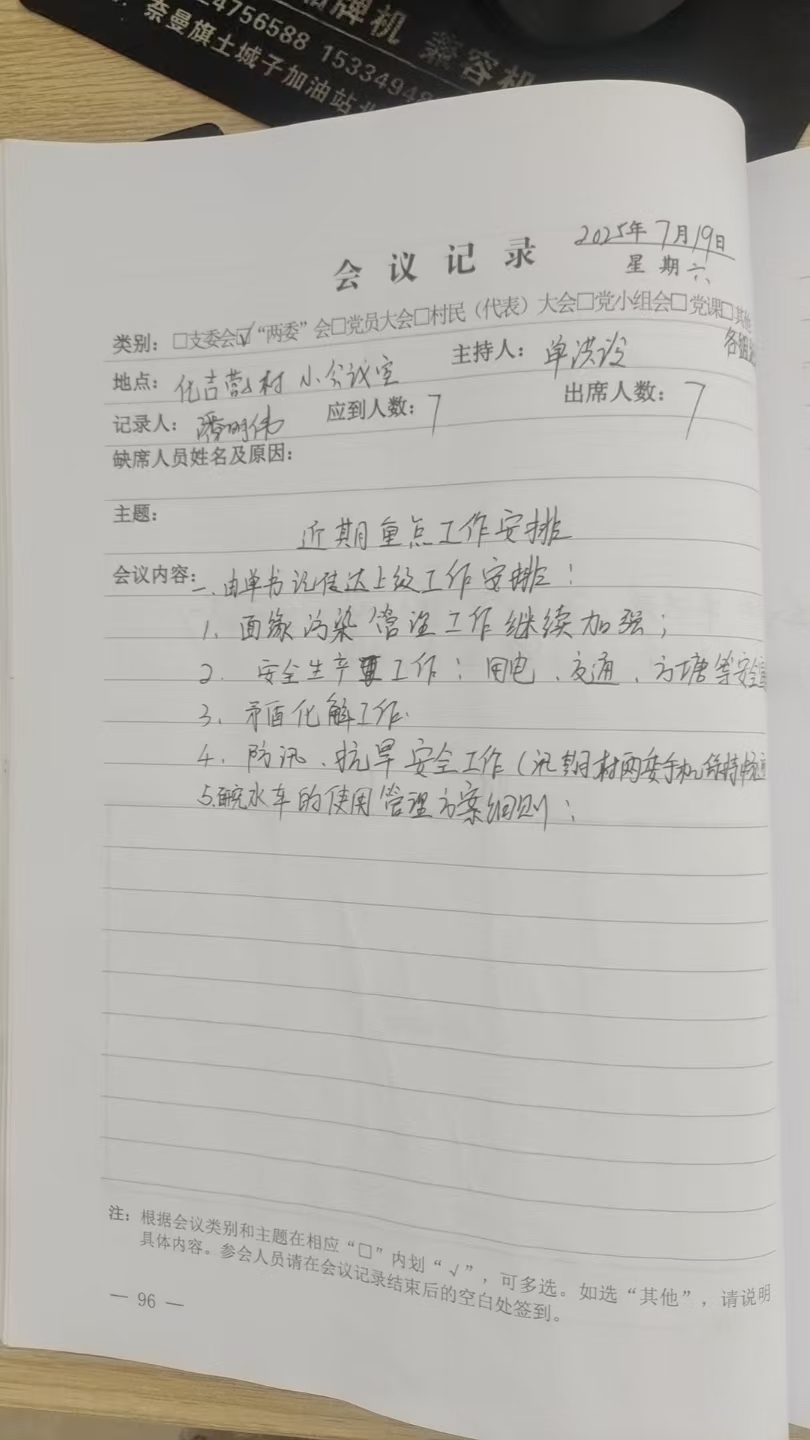 4756588 15334948
奈曼旗土城子加油站北
2025年7月19日
会议记录
星期六
类别：□支委会☑“两委”会□党员大会□村民（代表）大会□党小组会□党课□其他
地点：化吉营子村小会议室 主持人：单洪
记录人：潘明伟 应到人数：7 出席人数：7
缺席人员姓名及原因：
主题：
近期重点工作安排
会议内容：一、由单书记传达上级工作安排：
1. 面缘污染管理工作继续加强；
2. 安全生产工作：用电、交通、方塘等安全
3. 矛盾化解工作.
4. 防汛、抗旱安全工作（汛期村两委手机保持畅
5. 水车的使用管理方案细则：
注：根据会议类别和主题在相应“□”内划“√”，可多选。如选“其他”，请说明
具体内容。参会人员请在会议记录结束后的空白处签到。
— 96 —